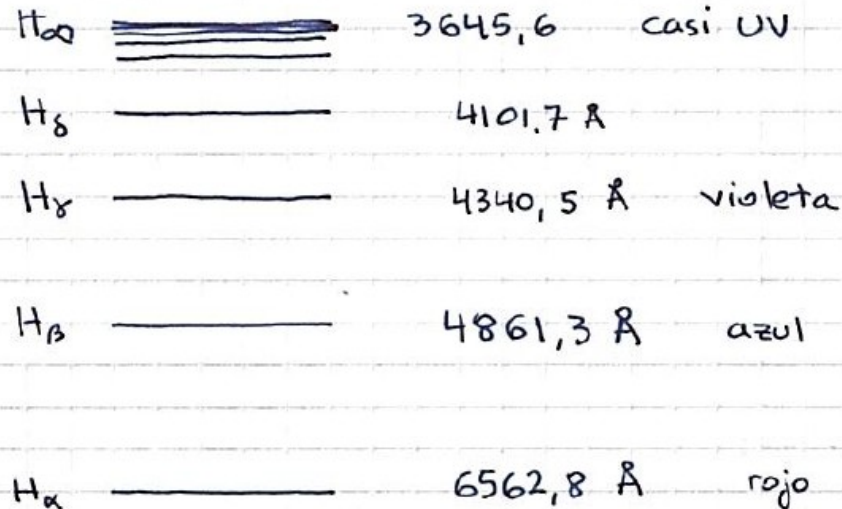 H∞ 3645,6 casi UV
Hδ 4101.7 Å
Hγ 4340,5 Å violeta
Hβ 4861,3 Å azul
Hα 6562,8 Å rojo